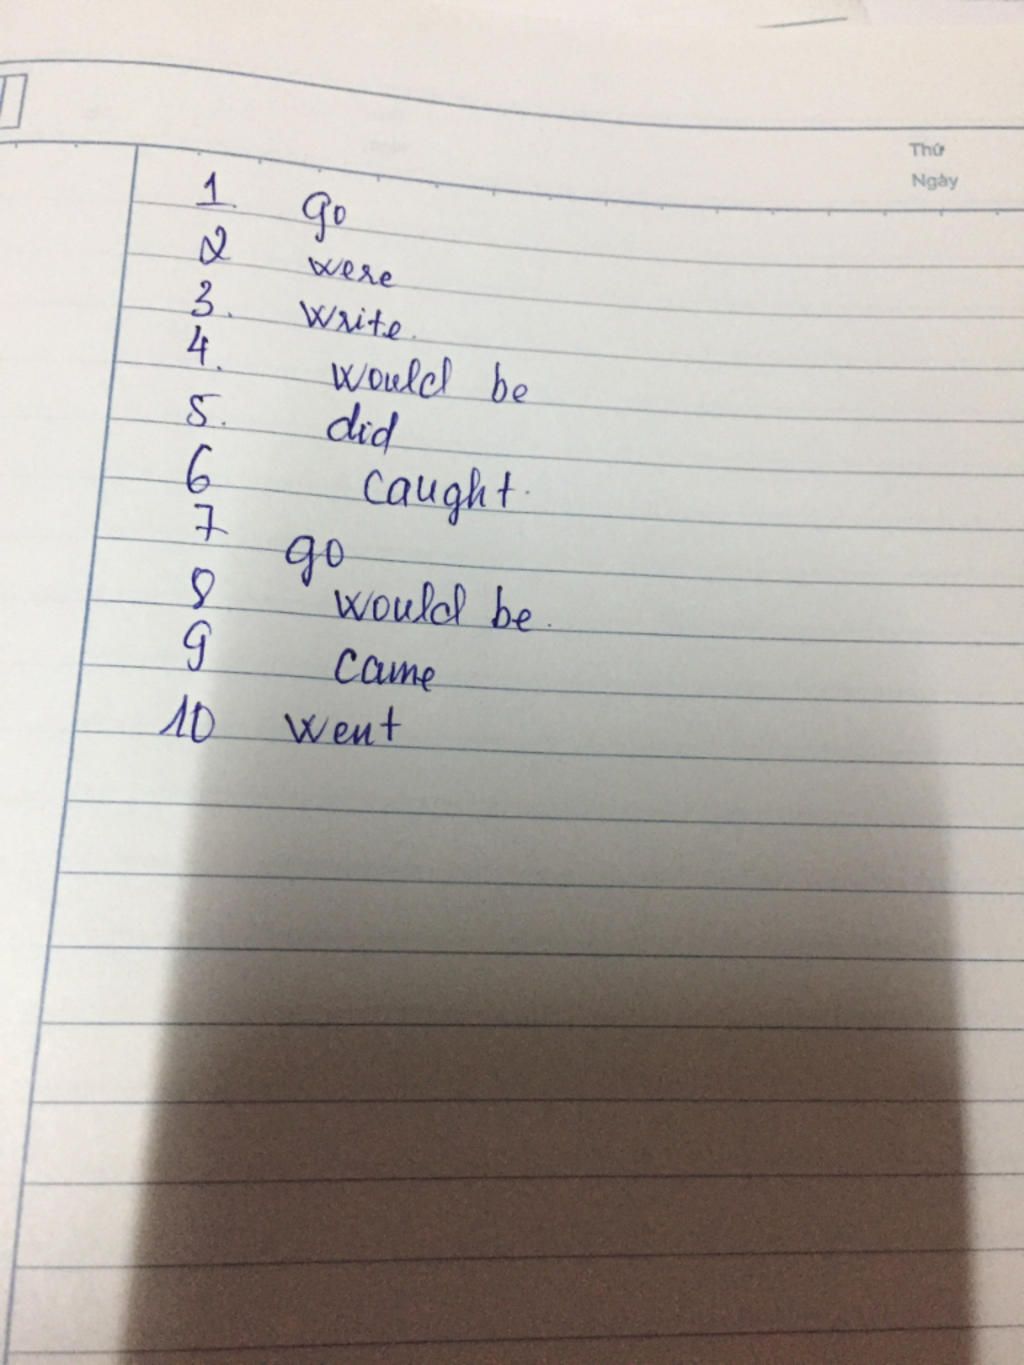 Thứ
Ngày
1. go
2 were
3. write.
4. would be
5. did
6 caught.
7 go
8 would be.
9 came
10 went